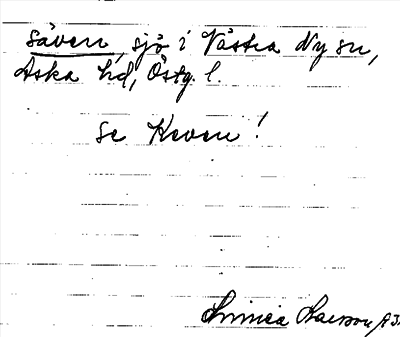 Såven, sjö i Västra Ny sn,
Aska hd, Östg. l.
se Kven!
Linnéa Larsson